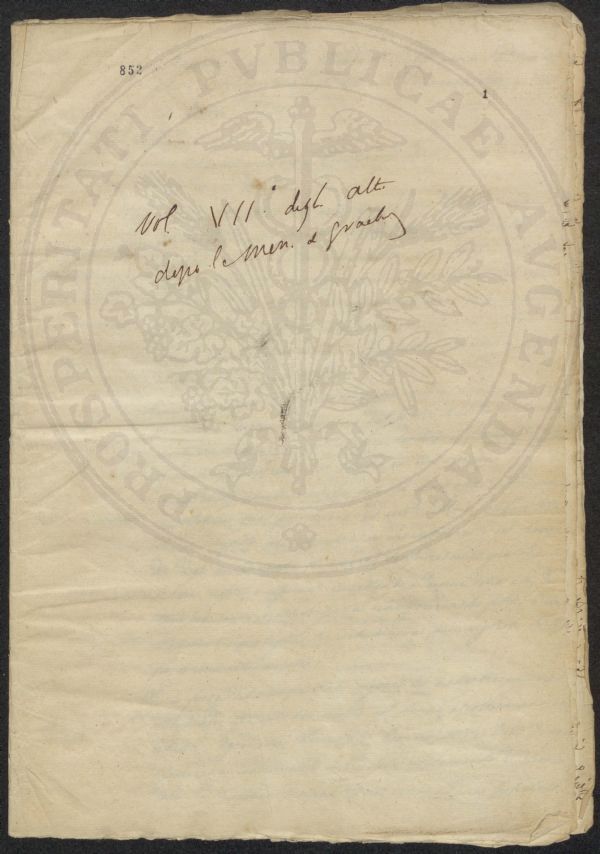 852
1
Vol VII.° degli atti
dopo le Mem. di Graeby
PROSPERITATI PVBLICAE AVGENDAE